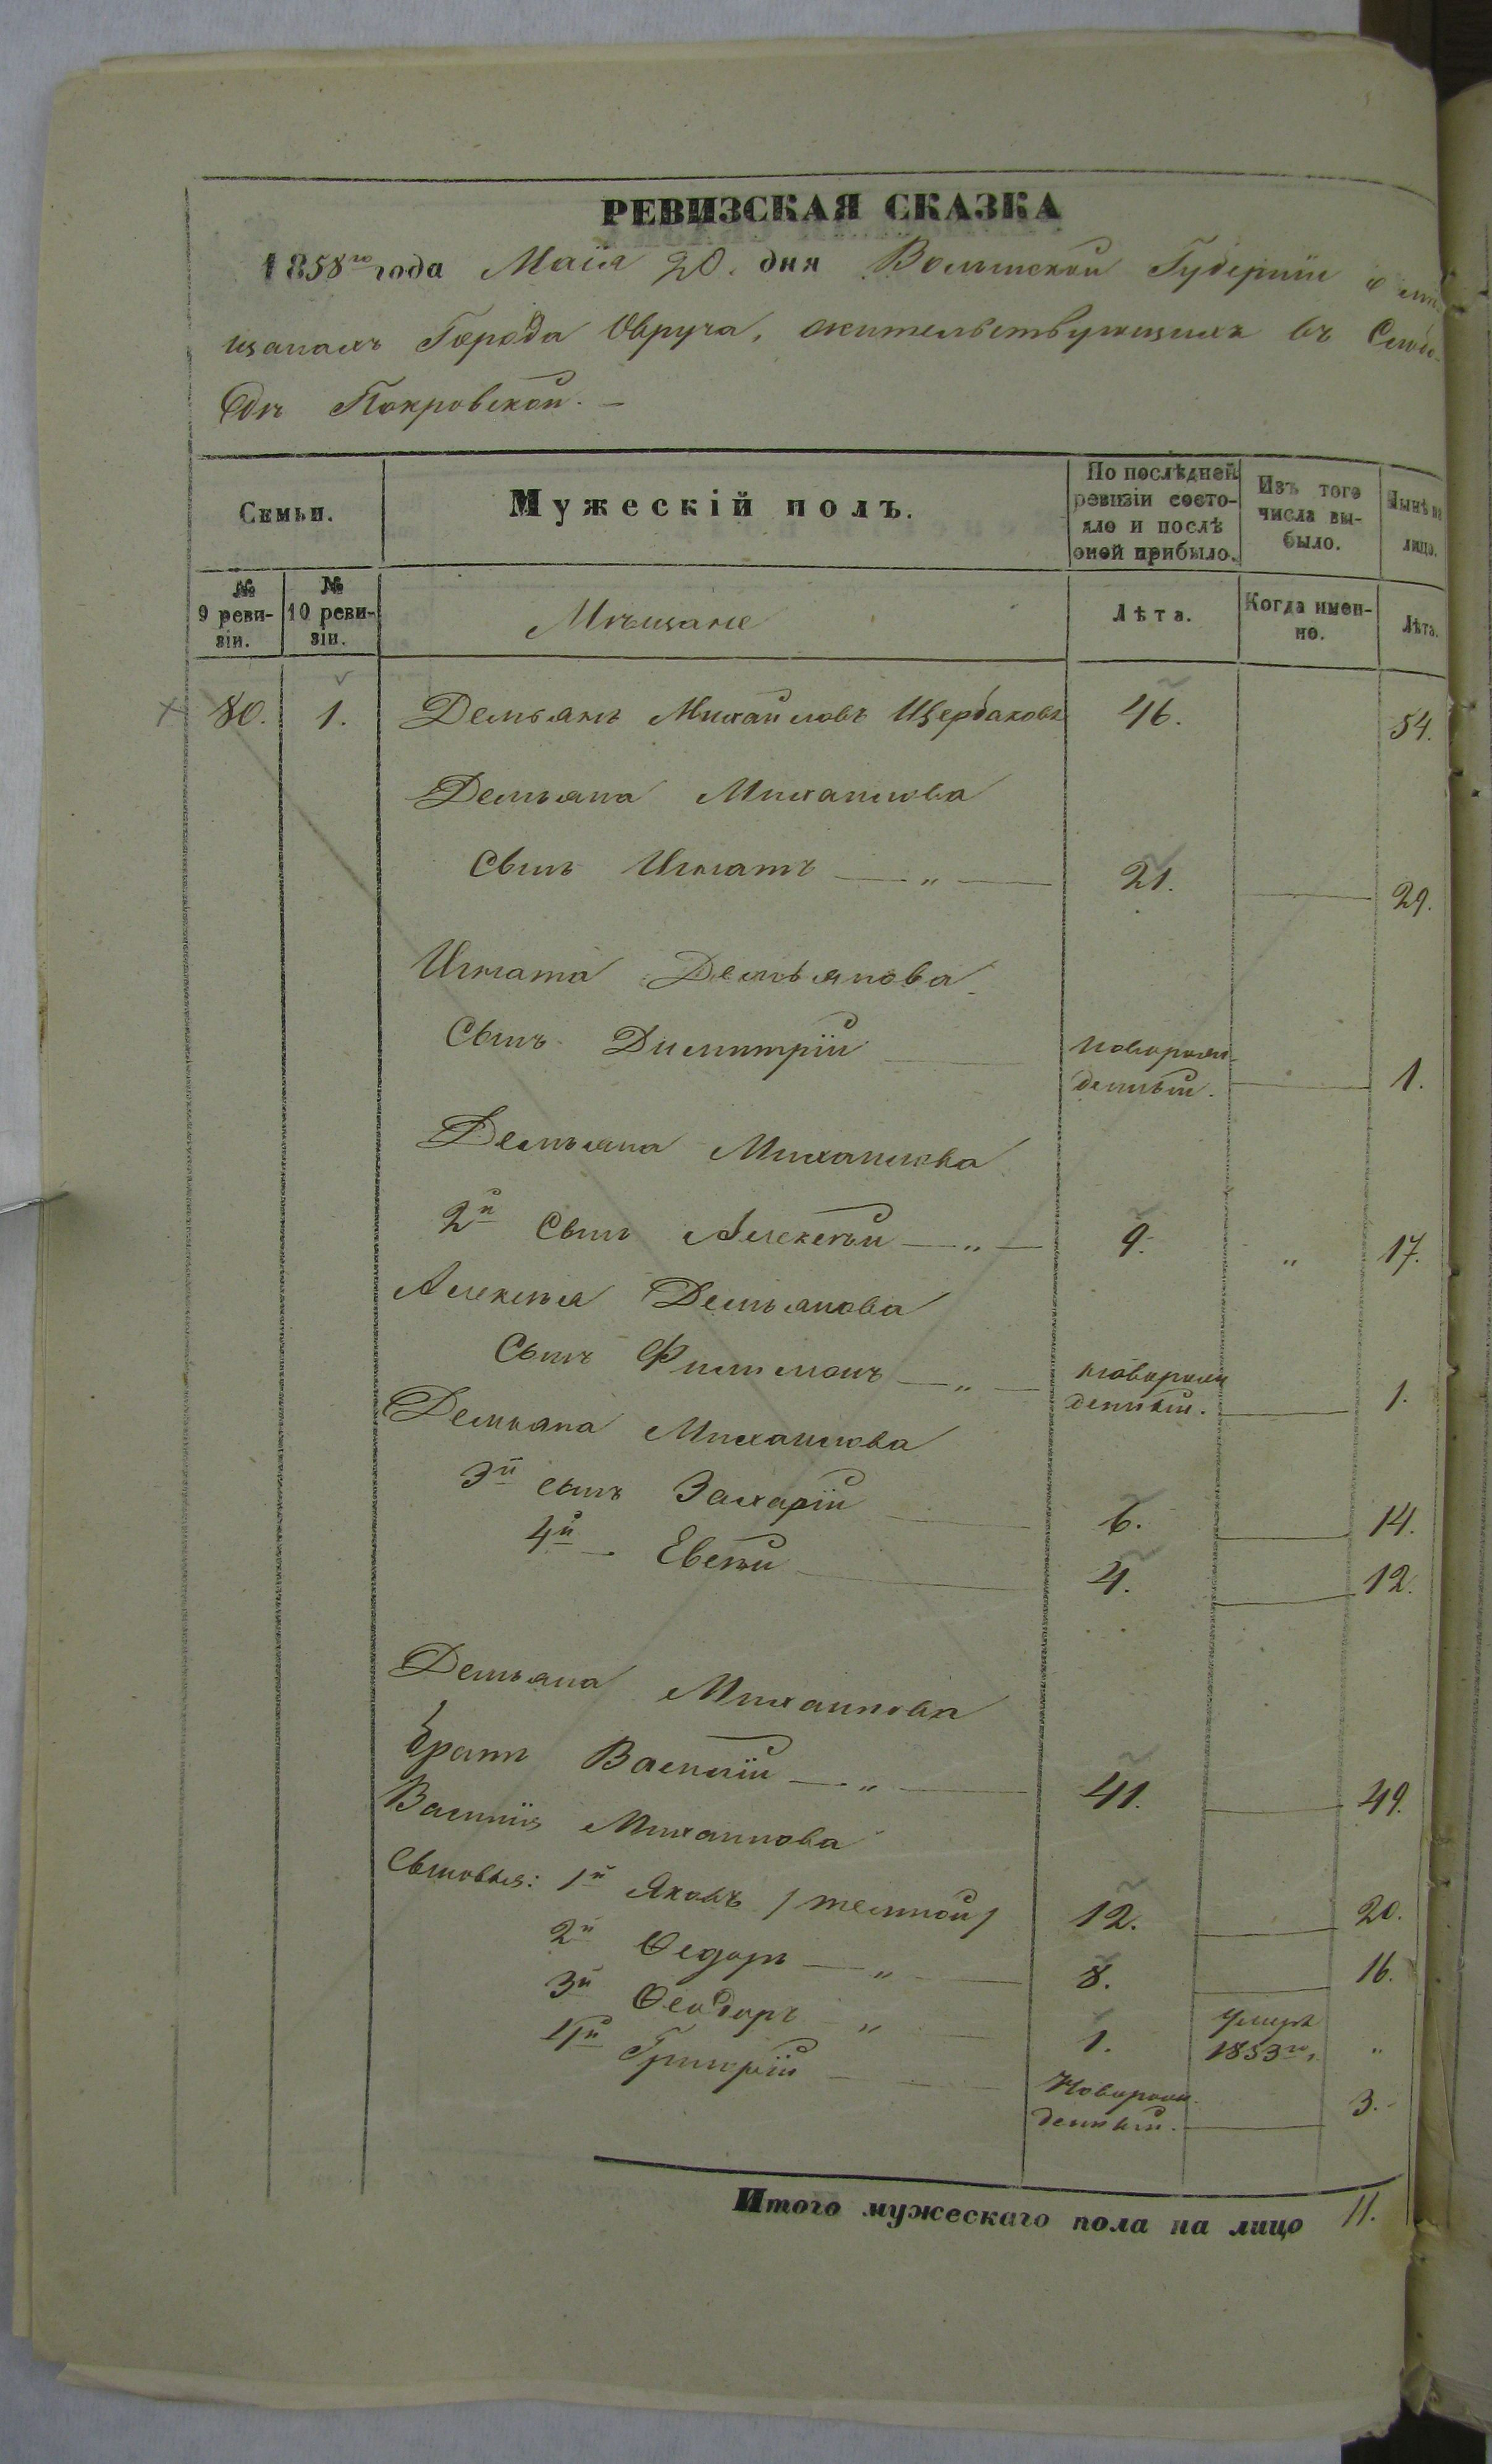 РЕВИЗСКАЯ СКАЗКА
1858го года Маія 20. дня Волынской Губерніи о мѣ-
щанахъ Города Овруча, жительствующихъ въ Слобо-
дѣ Покровской. —
Семьи.
Мужескій полъ.
По послѣдней ревизіи состо-
яло и послѣ оной прибыло.
Изъ того числа вы-
было.
Нынѣ на лицо.
№ 9 реви-
зіи.
№ 10 реви-
зіи.
Мѣщане
Лѣта.
Когда имен-
но.
Лѣта.
80. 1. Демьянъ Михайловъ Щербаковъ 46. 54.
Демьяна Михайлова
Сынъ Игнатъ — „ — 21. — 29.
Игната Демьянова
Сынъ Димитрій — новорож-
денный. — 1.
Демьяна Михайлова
2й Сынъ Алексѣй — „ — 9. „ 17.
Алексѣя Демьянова
Сынъ Филимонъ — „ — новорож
денный. — 1.
Демьяна Михайлова
3й сынъ Захарій — 6. — 14.
4й — Евсѣй — 4. — 12.
Демьяна Михайлова
братъ Василій — „ — 41. — 49.
Василія Михайлова
Сыновья: 1й Яковъ / темной / 12. — 20.
2й Ѳедоръ — „ — 8. — 16.
3й Ѳеодоръ „ — 1. Умеръ
1853го. „
4й Григорій — Новорож-
денный. — 3.
Итого мужескаго пола на лицо 11.